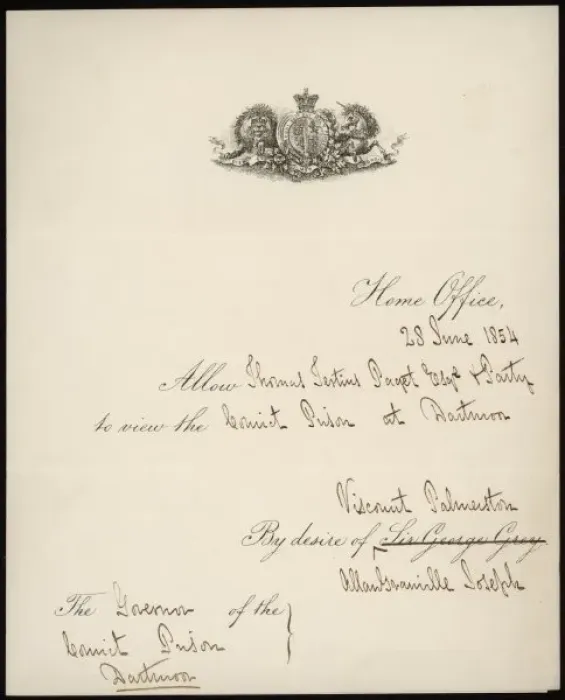 Home Office,
28 June 1854
Allow Thomas Tertius Paget Esqre & Party
to view the Convict Prison at Dartmoor
Viscount Palmerston
By desire of Sir George Grey
Joseph
The Governor of the
Convict Prison
Dartmoor